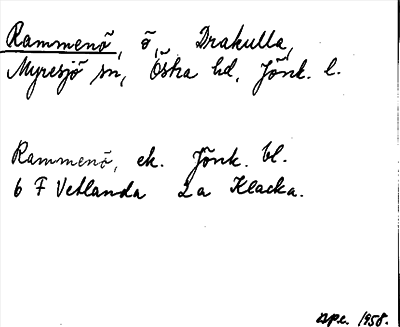 Rammenö, ö, Drakulla,
Myresjö sn, Östra hd, Jönk. l.
Rammenö, ek. Jönk. bl.
6 F Vetlanda 2a Klacka.
1958.